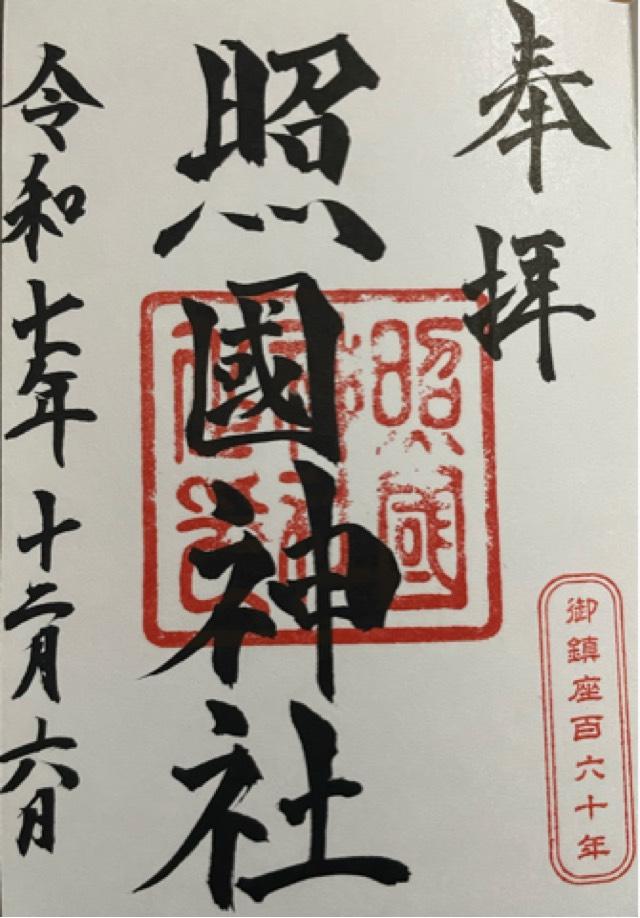 奉拝
御鎮座百六十年
照國
照國神社
令和七年十二月六日